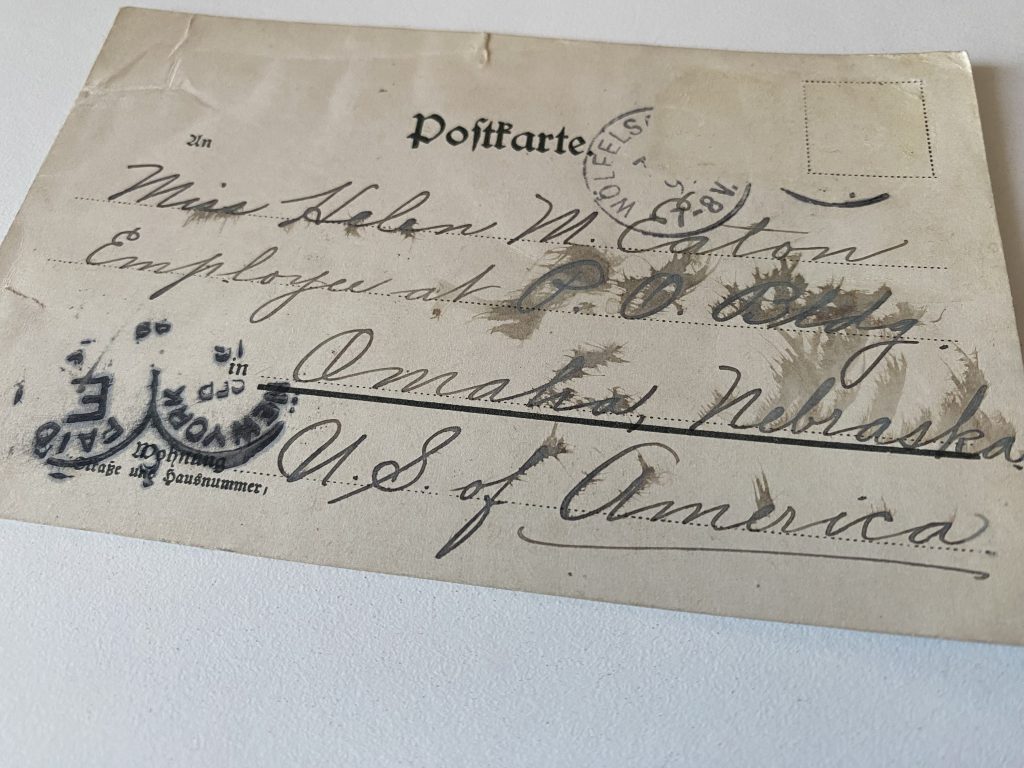 Postkarte.
An
WÖLFELS
7-8V.
Miss Helen M. Eaton
Employee at P. O. Bldg.
in Omaha, Nebraska.
U. S. of America
Wohnung
Straße und Hausnummer,
NEW YORK
PAID